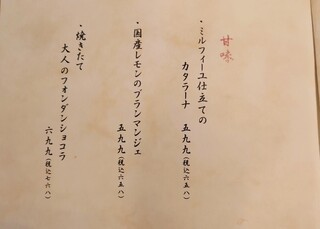 甘味
・ミルフィーユ仕立ての
カタラーナ 五九九(税込六五八)
・国産レモンのブランマンジェ
五九九(税込六五八)
・焼きたて
大人のフォンダンショコラ
六九九(税込七六八)